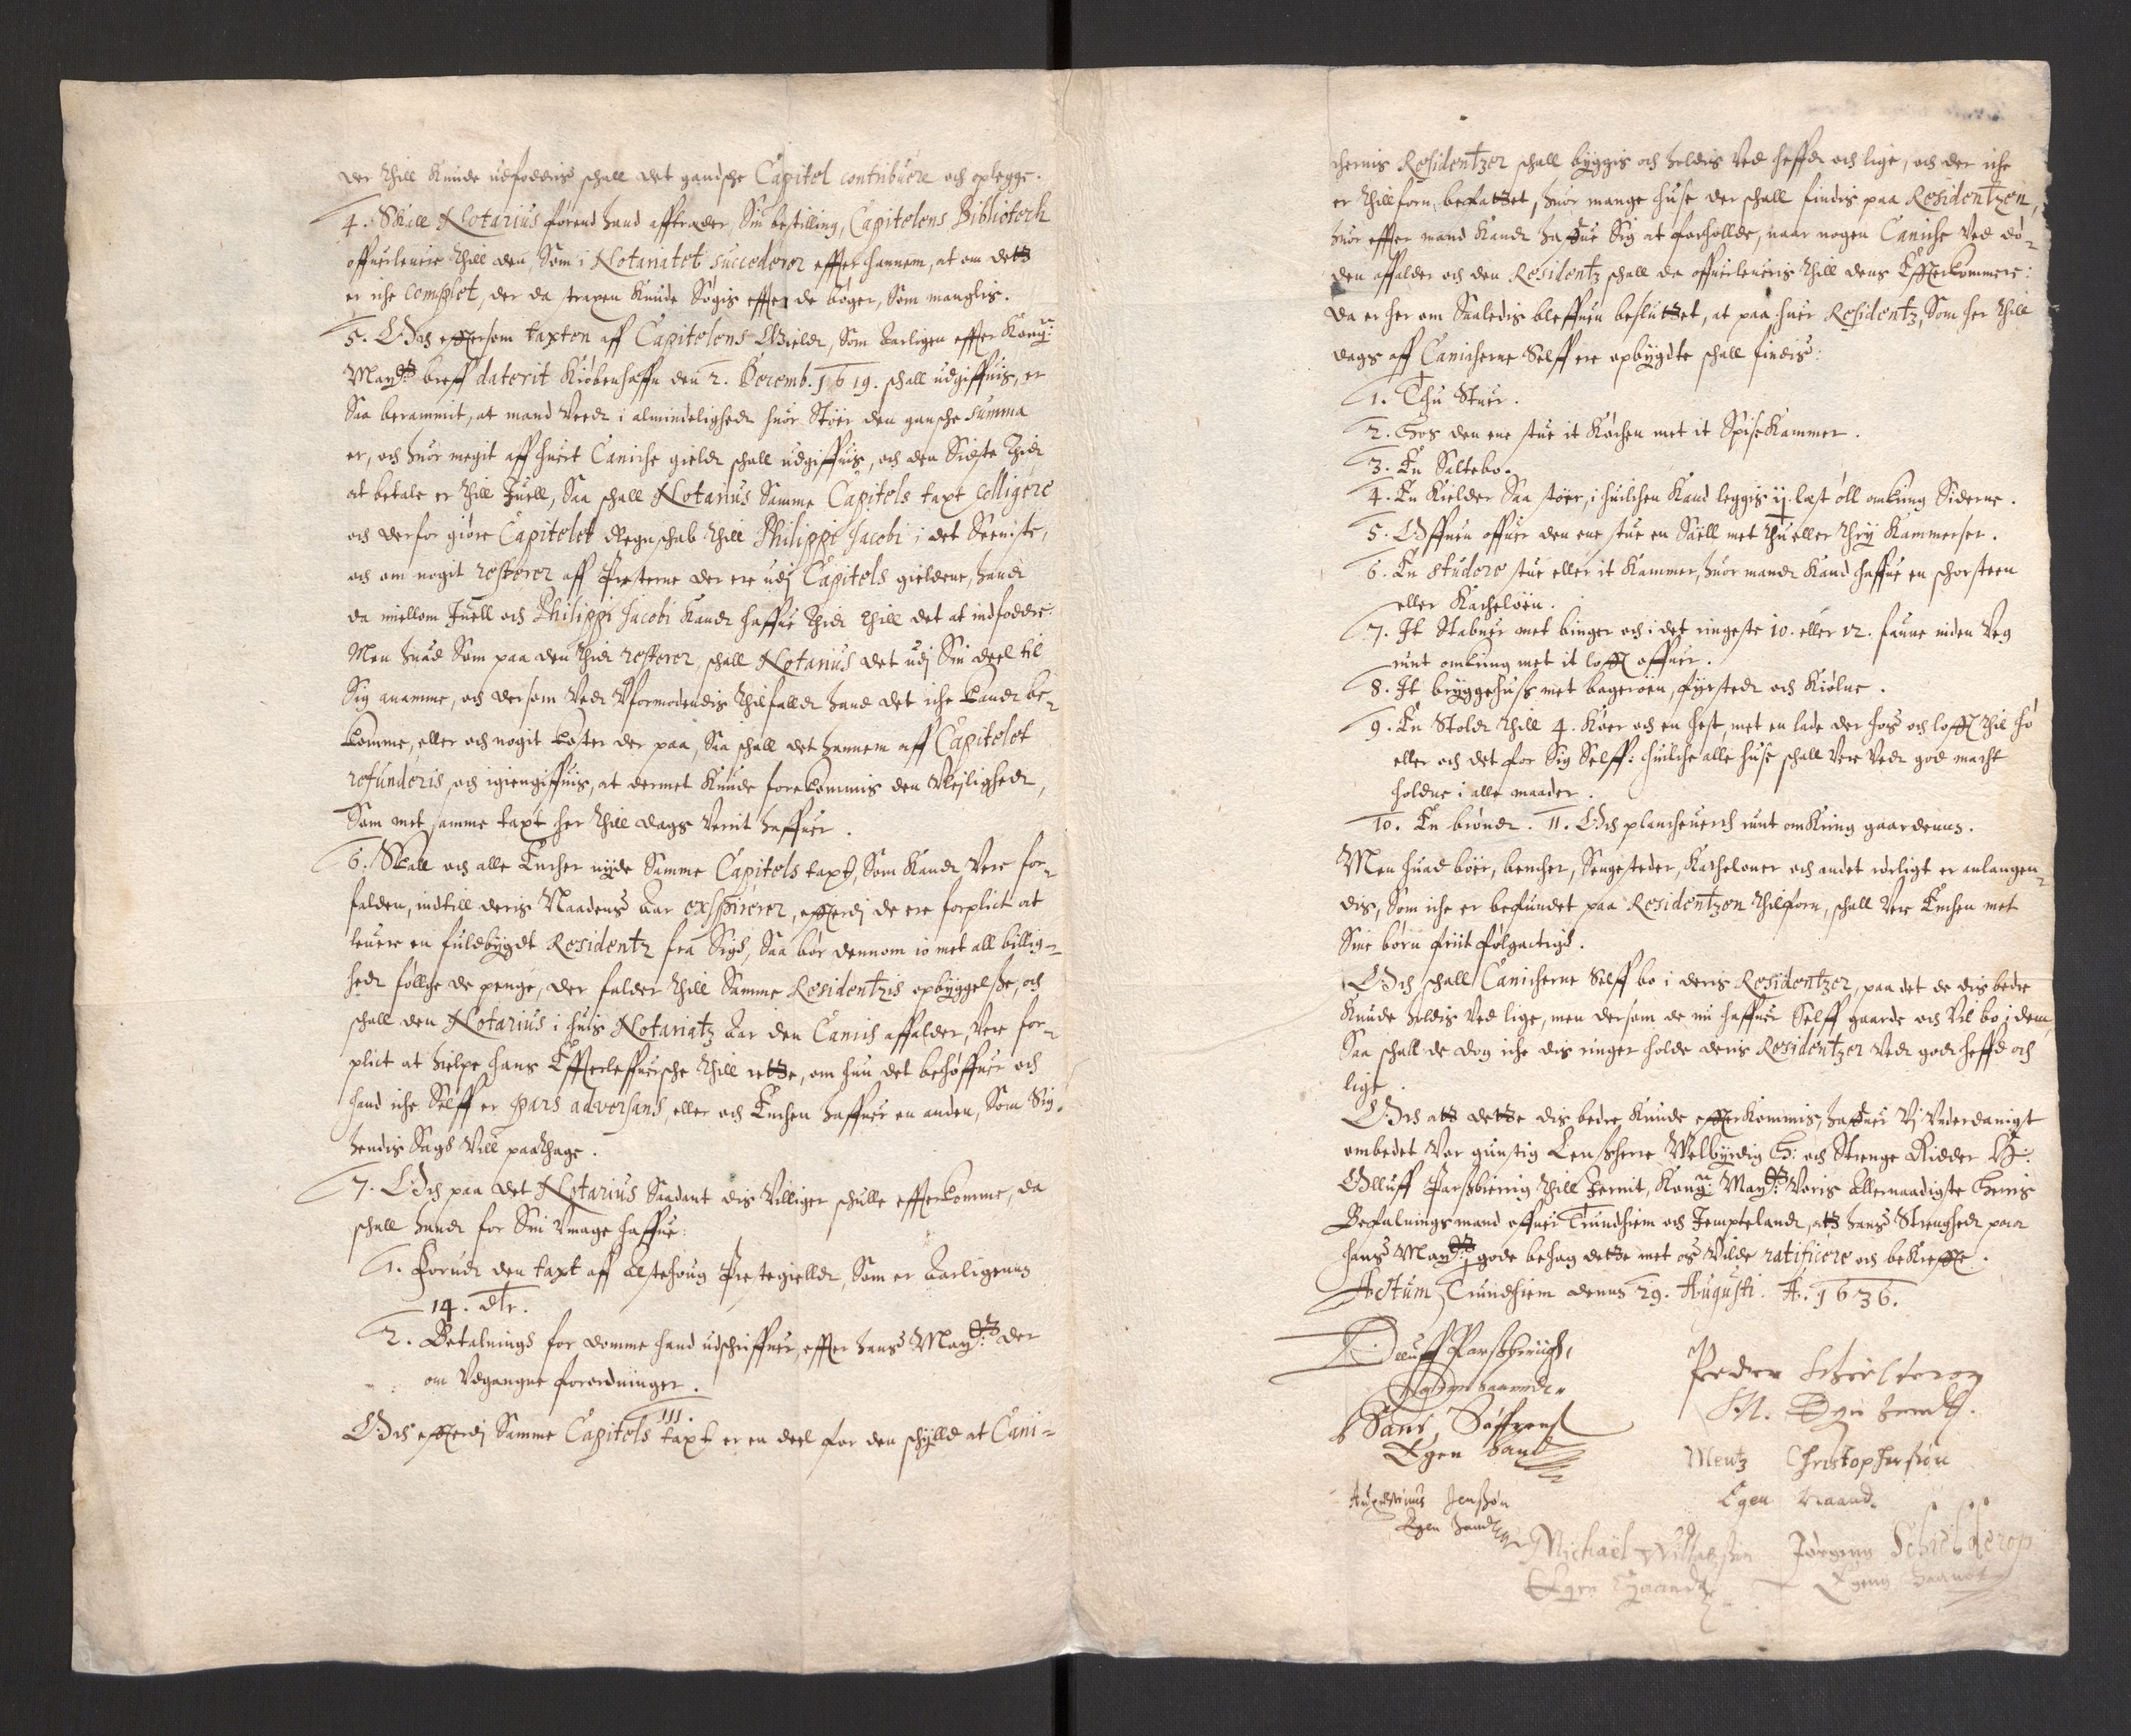 der thill kunde udfoddris schall det gandsche Capitel contribuere och oplegge.
4. Skall Notarius førend hand affträder Sin bestilling, Capitelens Bibliotech
offuerleuere thill den, Som i Notariatet succederer effter hannem, at om dett
er iche complet, der da straxen kunde Søgis effter de bøger, Som manglis.
5. Och effersom taxten aff Capitelens Gield, Som aarligen effter Kong:
May: breff daterit Kiøbenhaffn den 2. Decemb. 1619. schall udgiffuis, er
Saa berammit, at mand Veed i almindelighed huor Stoer den gansche summa
er, och huor megit aff huert Caniche gield schall udgiffuis, och den Sidste thid
at betale er thill Juell, Saa schall Notarius Samme Capitels taxt colligere
och derfor giøre Capitelet Regnschab thill Philippi Jacobi i det Seeniste,
och om nogit resterer aff Presterne der ere udj Capitels gieldene, hand
da mellom Juell och Philippi Jacobi kand haffue thid thill det at indfoddre.
Men huad Som paa den thid resterer, schall Notarius det udj Sin deel til
Sig anamme, och dersom Ved Vformodendis thilfalld hand det iche kand be-
komme, eller och nogit koster der paa, Saa schall det hannem aff Capitelet
refunderis, och igiengiffuis, at dermet kunde forekommis den Vleylighed,
Som met samme taxt her thill dags Verit haffuer.
6. Skall och alle Encher nyde Samme Capitels taxt, Som kand Vere for-
falden, indtill deris Naadens Aar exspirerer, effterdj de ere forplict at
leuere en fuldbygdt Residentz fra Sigh, Saa bør dennom io met all billig-
hed følge de penge, der falder thill Samme Residentzis opbyggelse, och
schall den Notarius i huis Notariatz Aar den Canich affalder, Vere for-
plict at hielpe hans Effterleffuersche thill rette, om hun det behøffuer och
hand iche Selff er pars adversans, eller och Enchen haffuer en anden, Som Sig
hendis Sagh Vill paathage.
7. Och paa det Notarius Saadant dis Villiger schulle effterkomme, da
schall hand for Sin Vmage haffue:
1. Forud den taxt aff Alstehoug Prestegielld, Som er Aarligenns
14. dlr.
2. Betalningh for domme hand udschriffuer, effter hans May: der
om Vdgangne forordninger.
III.
Och effterdj Samme Capitels taxt er en deel for den schylld at Cani-
chernis Residentzer schall byggis och holdis Ved heffd och lige, och der iche
er thillforn, befattet, huor mange huse der schall findis paa Residentzen,
huor effter mand kand haffue Sig at forhollde, naar nogen Caniche Ved dø-
den affalder och den Residentz schall da offuerleueris thill dens Effterkommere:
da er her om Saaledis bleffuen besluttet, at paa huer Residentz, Som her thill
dags aff Canicherne Selff ere opbygdte schall findis:
1. Thu Stuer.
2. Hos den ene stue it Køchen met it Spisekammer.
3. En Saltebo.
4. En Kielder Saa stoer, i huilchen kand leggis ij. læst øll omkring Siderne.
5. Offuen offuer den ene stue en Saell met thu eller thry Kammerser.
6. En studere stue eller it Kammer, huor mand kand haffue en schorsteen
eller Kacheloen.
7. It Stabuer met binger och i det ringeste 10. eller 12. faune inden Veg
runt omkring met it lofft offuer.
8. It bryggehuss met bageroen, fyrsted och Kiølne.
9. En Stold thill 4. Køer och en hest, met en lade der hos och lofft thil hø
eller och det for Sig Selff: huilche alle huse schall Vere Ved god macht
holdne i alle maader.
10. En brønd. 11. Och planchewerch runt omkring gaardenns.
Men huad boer, bencher, Sengesteder, Kacheloner och andet rørligt er anlangen-
dis, Som iche er befundet paa Residentzen thilforn, schall Vere Enchen met
Sine børn friit følgactigh.
Och schall Canicherne Selff bo i deris Residentzer, paa det de dis bedre
kunde holdis Ved lige, men dersom de nu haffuer Selff gaarde och Vil bo i dem
Saa schall de dog iche dis ringer holde deris Residentzer Ved god heffd och
lige.
Och att dette dis bedre kunde effterkommis, haffuer Vj Vnderdanigt
ombedet Vor gunstig Lensherre Welbyrdig H: och Strenge Ridder H:
Olluff Parsbierrig thill Jernit, Kong: May: Voris allernaadigste Herris
Befalningsmand offuer Trundhiem och Jempteland, att hans Strenghed paa
hans May: gode behag dette met os Vilde ratificere och bekreffte.
Actum Trundhiem denns 29. Augusti. A. 1636.
Oluff Parsbierigh,
Egen haannd
Peder Schielderop
M. Egen handt.
Hans Søffrens
Egen hand
Mentz Christophersøn
Egen haand.
Augustinus Jenssøn
Egen hand
Michael
Egen Haand
Jørgenn Schielderop
Egenn haandt